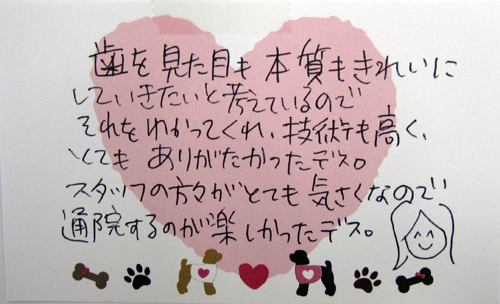 歯を見た目も本質もきれいに
していきたいと考えているので
それをわかってくれ、技術も高く、
とてもありがたかったデス。
スタッフの方々がとても気さくなので
通院するのが楽しかったデス。